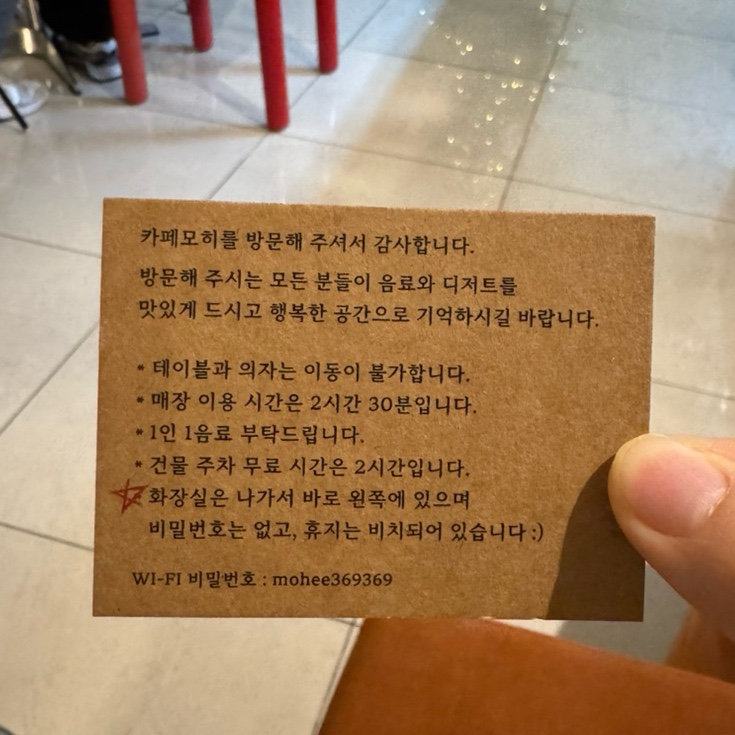 카페모히를 방문해 주셔서 감사합니다.
방문해 주시는 모든 분들이 음료와 디저트를
맛있게 드시고 행복한 공간으로 기억하시길 바랍니다.
* 테이블과 의자는 이동이 불가합니다.
* 매장 이용 시간은 2시간 30분입니다.
* 1인 1음료 부탁드립니다.
* 건물 주차 무료 시간은 2시간입니다.
* 화장실은 나가서 바로 왼쪽에 있으며
비밀번호는 없고, 휴지는 비치되어 있습니다 :)
WI-FI 비밀번호 : mohee369369